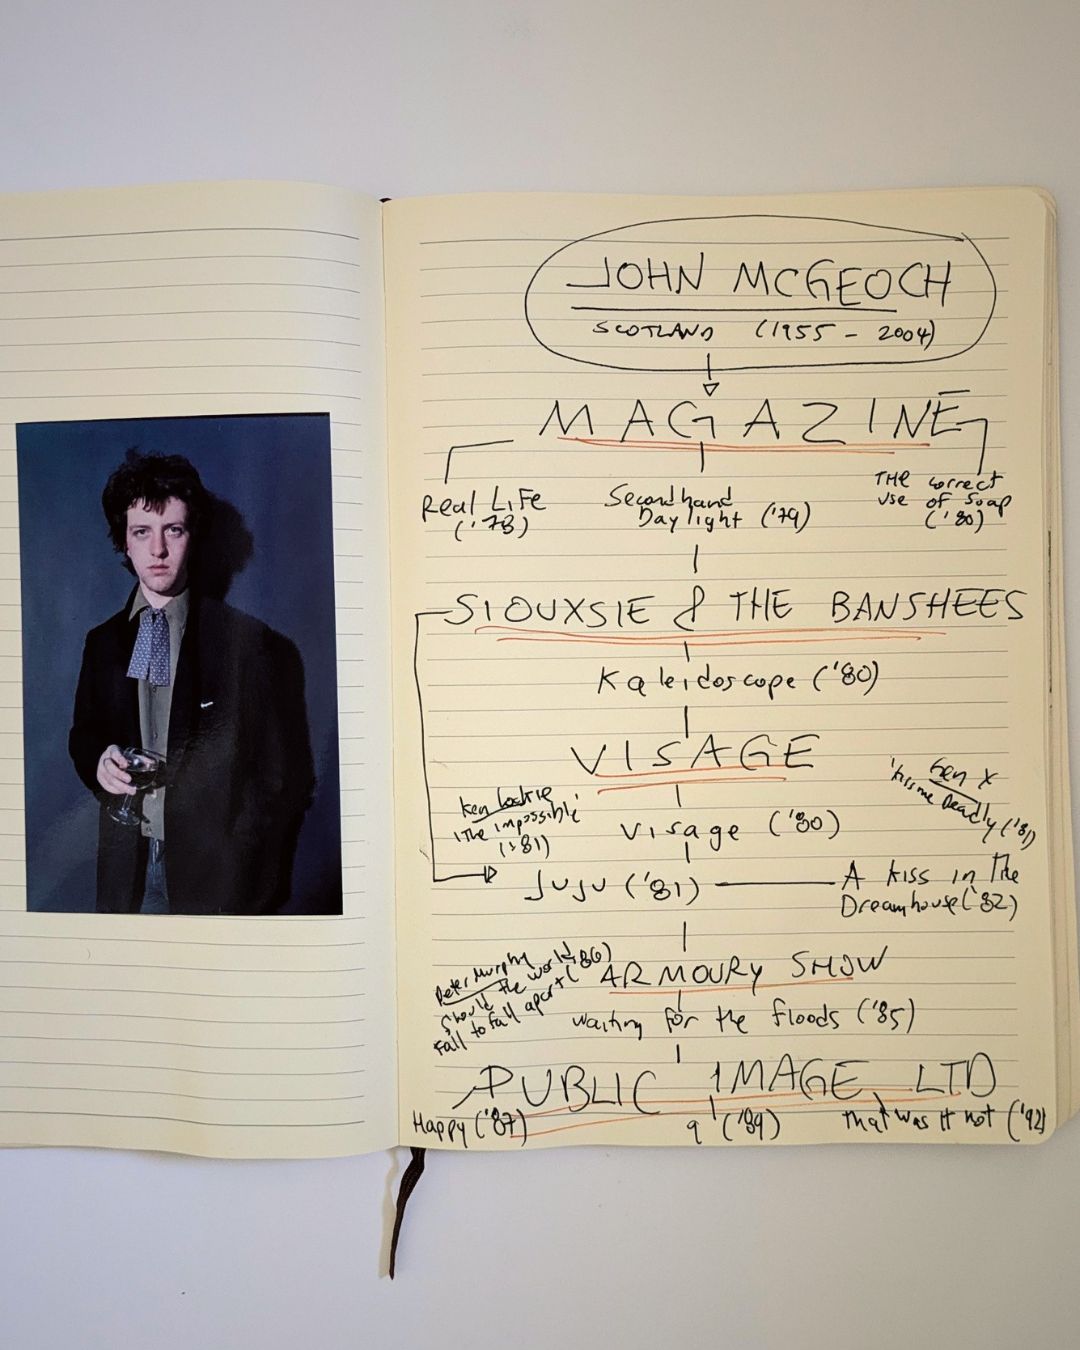 JOHN MCGEOCH
SCOTLAND (1955 - 2004)
MAGAZINE
Real Life
('78)
Secondhand
Daylight ('79)
THE correct
use of Soap
('80)
SIOUXSIE & THE BANSHEES
Kaleidoscope ('80)
VISAGE
Gen X
'Kiss me Deadly ('81)
Ken Lockie
'The Impossible'
('81)
Visage ('80)
JuJu ('81)
A kiss in The
Dreamhouse ('82)
Peter Murphy
Should the world
Fail to fall apart ('86)
ARMOURY SHOW
waiting for the floods ('85)
PUBLIC IMAGE LTD
Happy ('87)
9 ('89)
That was It not ('92)